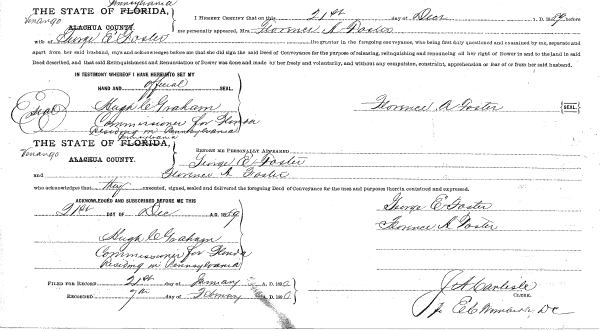 Pennsylvania
THE STATE OF FLORIDA,
Venango
ALACHUA COUNTY.
I HEREBY CERTIFY that on this 21st day of Decr A. D. 1889 before
me personally appeared, Mrs. Florence A Foster
wife of George E Foster the grantor in the foregoing conveyance, who being first duly questioned and examined by me, separate and
apart from her said husband, says and acknowledges before me that she did sign the said Deed of Conveyance for the purpose of releasing, relinquishing and renouncing all her right of Dower in and to the land in said
Deed described, and that said Relinquishment and Renunciation of Dower was done and made by her freely and voluntarily, and without any compulsion, constraint, apprehension or fear of or from her said husband.
IN TESTIMONY WHEREOF I HAVE HEREUNTO SET MY
HAND AND official
Seal
Hugh C Graham
Florence A Foster
SEAL.
Commissioner for Florida
Residing in Pennsylvania
Pennsylvania
THE STATE OF FLORIDA,
Venango
ALACHUA COUNTY.
BEFORE ME PERSONALLY APPEARED
George E Foster
and Florence A. Foster
who acknowledges that they executed, signed, sealed and delivered the foregoing Deed of Conveyance for the uses and purposes therein contained and expressed.
ACKNOWLEDGED AND SUBSCRIBED BEFORE ME THIS
21st DAY OF Dec A.D. 1889
George E Foster
Florence A Foster
Hugh C Graham
Commissioner for Florida
Residing in Pennsylvania
FILED FOR RECORD 21st day of January A. D. 1890
RECORDED 7th day of February A. D. 1890
J A Carlisle
CLERK.
DC